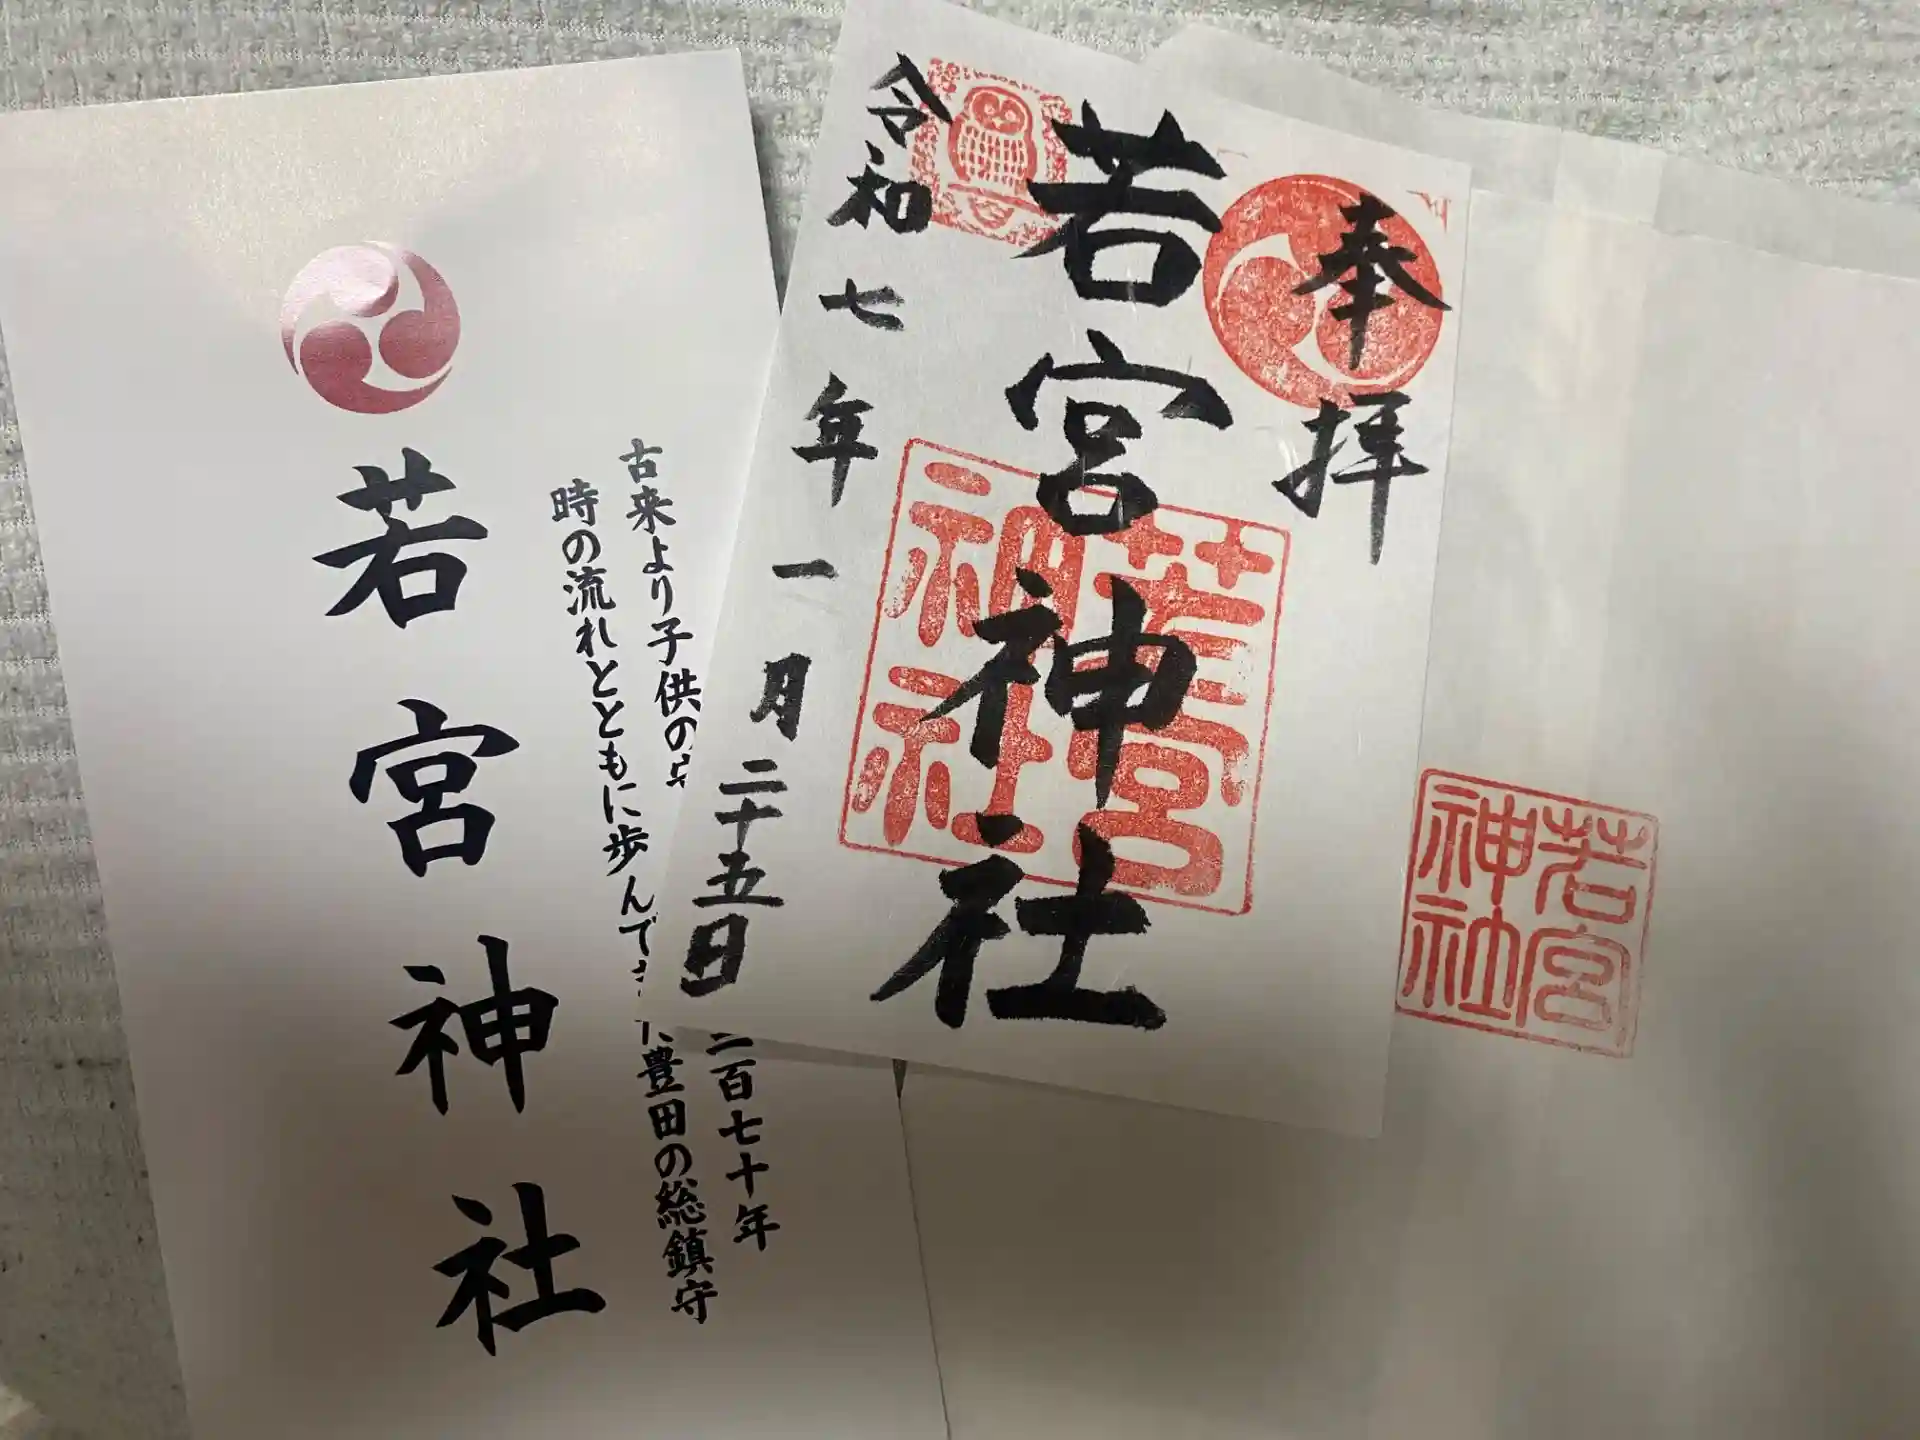 奉拝
若宮神社
令和七年一月二十五日
若宮
神社
若宮
神社
二百七十年
古来より子供の
時の流れとともに歩んで
豊田の総鎮守
若宮神社